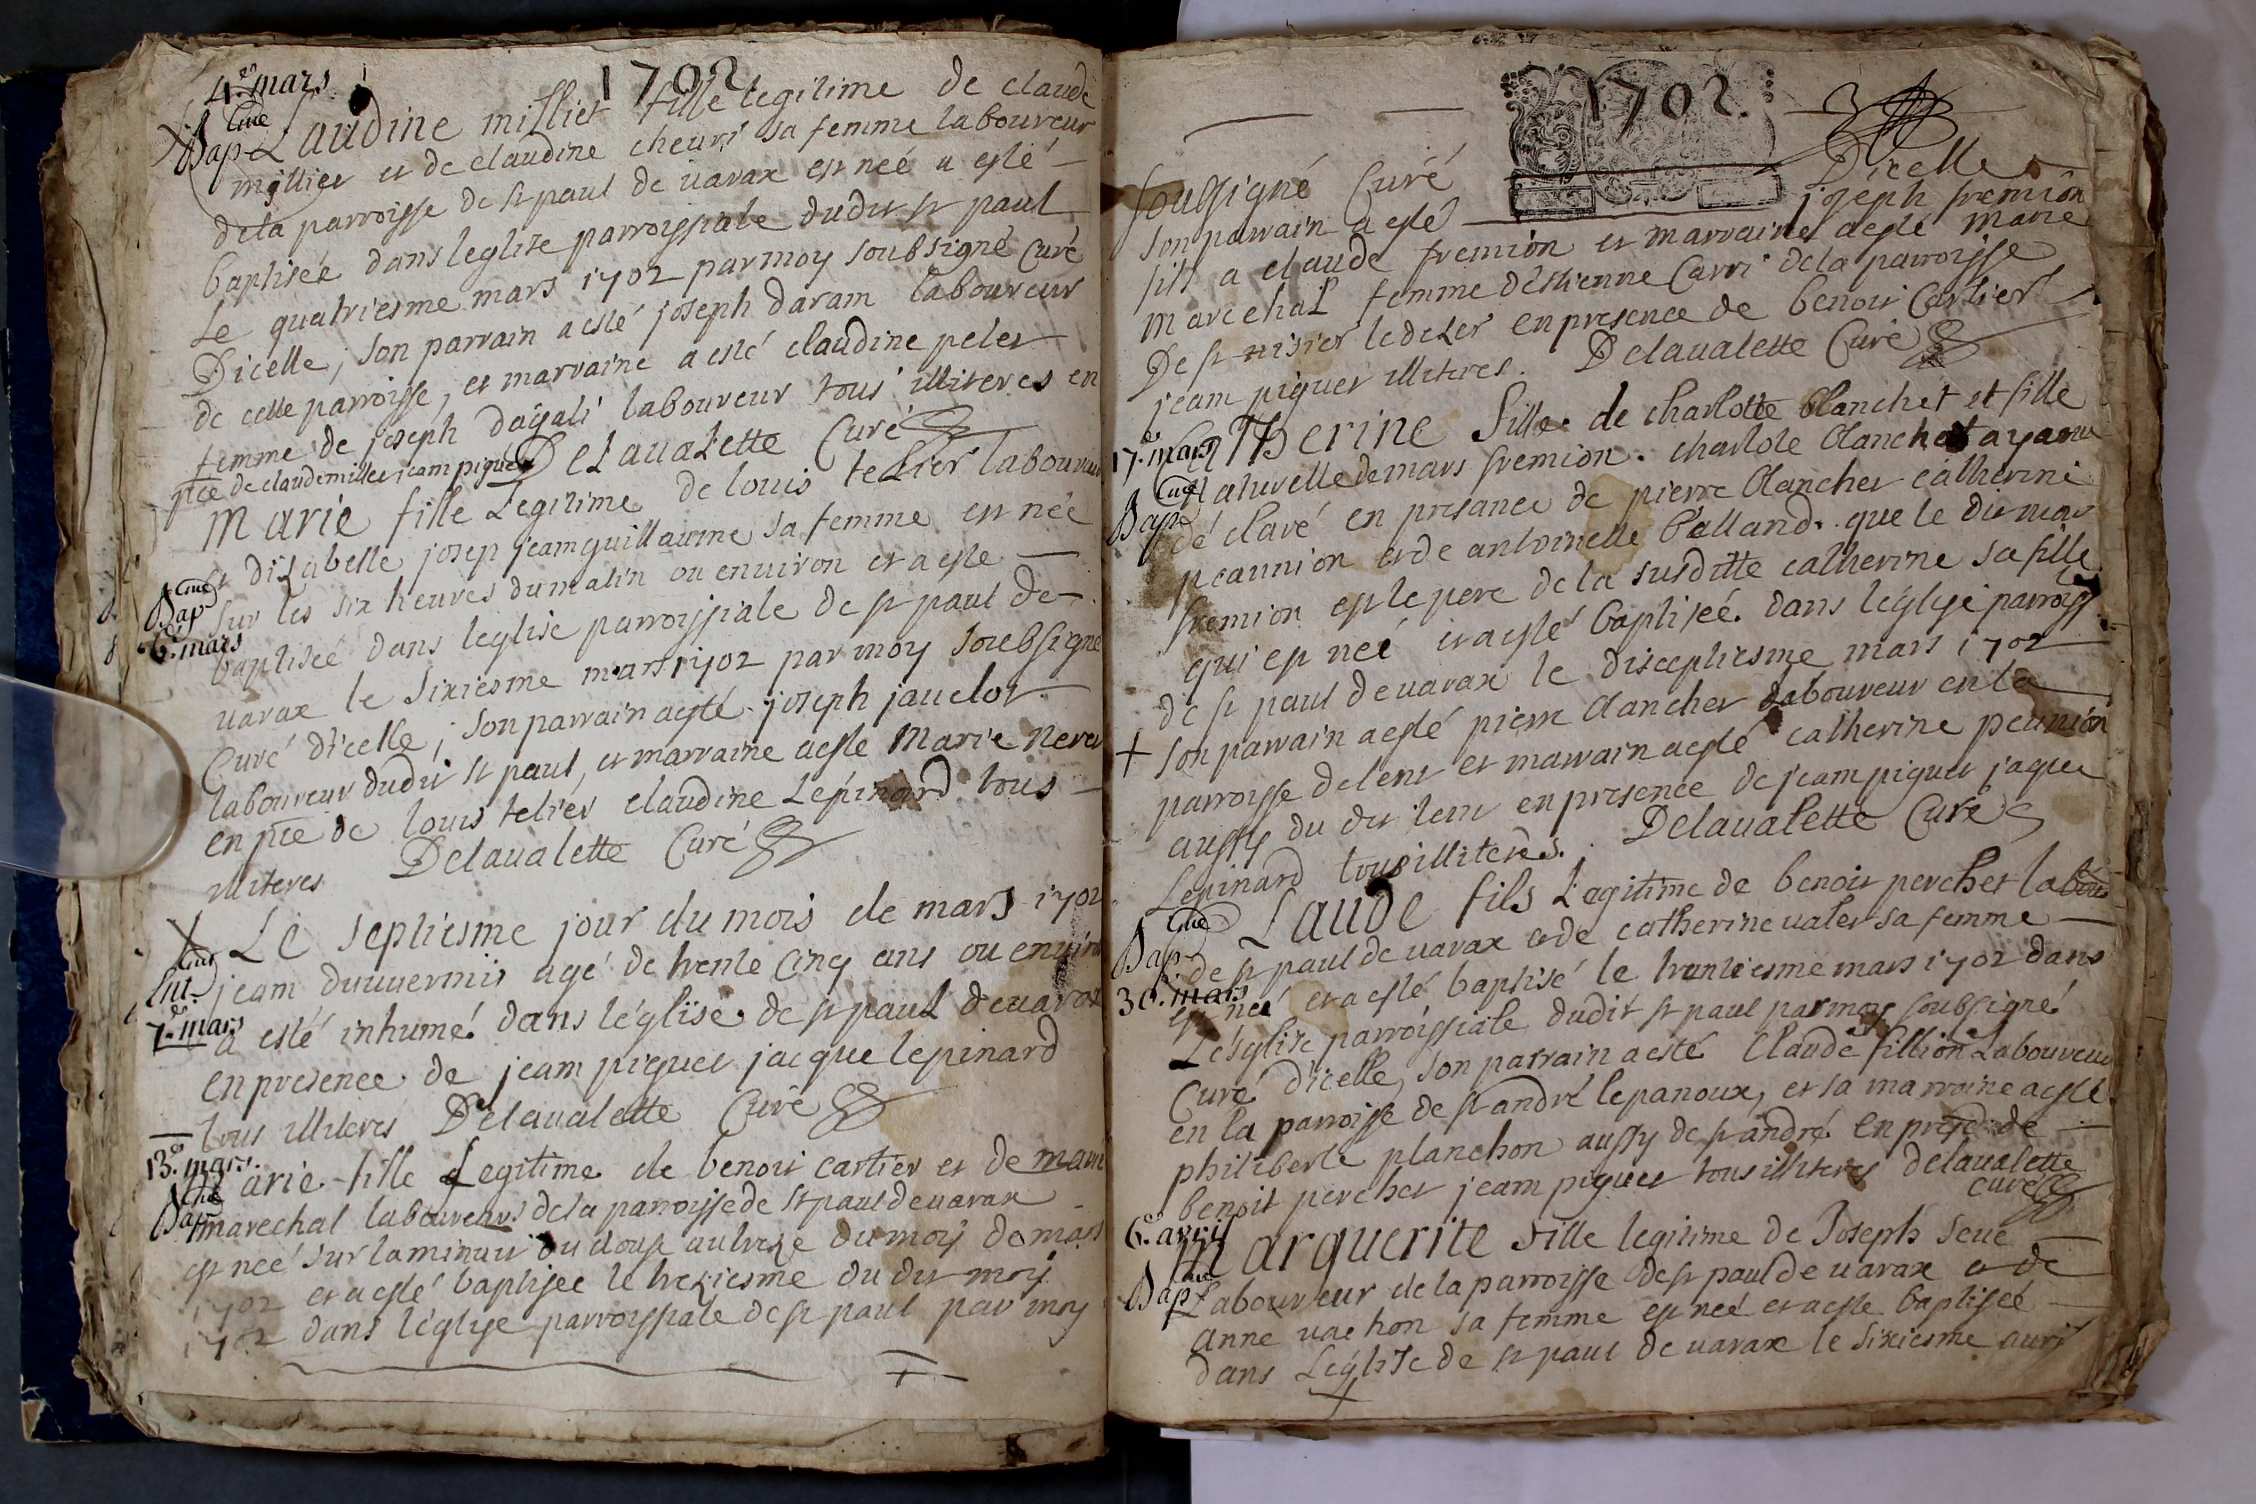 1702
4.e mars
Bap. Claudine milliet fille legitime de claude
millier et de claudine cheuri sa femme laboureur
dela parroisse de st paul de uarax est neé a esté
baptiseé dans leglise parroissiale dudit st paul
Le quatriesme mars 1702 par moy soubsigné Curé
Dicelle, son parrain a esté joseph daram laboureur
de cette parroisse, et marraine a esté claudine pelet
femme de joseph dagali laboureur tous illiteres en
pñce de claude millet jeam piguet Delaualette Curé
Marie fille Legitime de louis telier laboureur
et disabelle josep jeamguillaume sa femme est neé
Bap. sur les six heures dumatin ou enuiron et a esté
6. mars baptiseé dans leglise parroissiale de st paul de
uarax le sixiesme mars 1702 par moy soubsigné
Curé dicelle, son parrain a esté joseph jauelot
laboureur dudit st paul, et marraine a esté Marie
en pñce de louis telier claudine Lépinard tous
illiteres Delaualette Curé
Le septiesme jour du mois de mars 1702
jeam duuuernis agé de trente cinq ans ou enuiron
7.e mars a esté inhumé dans léglise de st paul deuarax
en presence de jeam piguet jacque lepinard
tous illiteres Delaualette Curé
13.e mars.
Marie fille Legitime de benoit cartier et de marie
Bap. marechal laboureurs dela parroisse de st paul deuarax
est neé sur laminuit du douse au treze du moy de mars
1702 et a esté baptiseé le treziesme du dit moy
1702 dans léglise parroissiale de st paul par moy
1702.
soubsigné Curé Dicelle
son parrain a esté joseph fremion
fils a claude fremion et marraine a esté marie
marechal femme déstienne Carri dela parroisse
De st nisier ledeser en presence de benoit Cartier
jeam piguet illiteres. Delaualette Curé
17.e mars Catherine fille de charlotte Clanchet et fille
Bap. Naturelle de mars fremion. charlote Clanchet ayant
dé claré en presance de pierre Clanchet catherine
peaunion et de antoinette Balland. que le dit mar
fremion est le pere de la susditte catherine sa fille
qui est neé et a esté baptiseé dans léglise parroiss
de st paul deuarax le diseeptiesme mars 1702
+ son parrain a esté pierre Clanchet laboureur en la
parroisse delent et marrain a esté catherine peunion
aussy du dit lent en presence de jeam piguet jaque
Lepinard tous illiteres. Delaualette Curé
Claude fils Legitime de benoit perchet labou
Bap. de st paul de uarax et de catherine ualet sa femme
30. mars est neé et a esté baptisé le trentiesme mars 1702 dans
Leéglise parroissiale dudit st paul par moy soubsigné
Curé dicelle, son parrain a esté Claude fillion Laboureur
en la parroisse de st andré lepanoux, et sa marraine a esté
philiberte planchon aussy de st andré en presc de
benoit perchet jeam piguet tous illiteres delaualette
curé
6.e avril
Marguerite fille legitime de Joseph Seue
Bap. Laboureur dela parroisse de st paul de uarax et de
anne uachon sa femme est neé et a esté baptiseé
dans Léglise de st paul de uarax le sixiesme auril